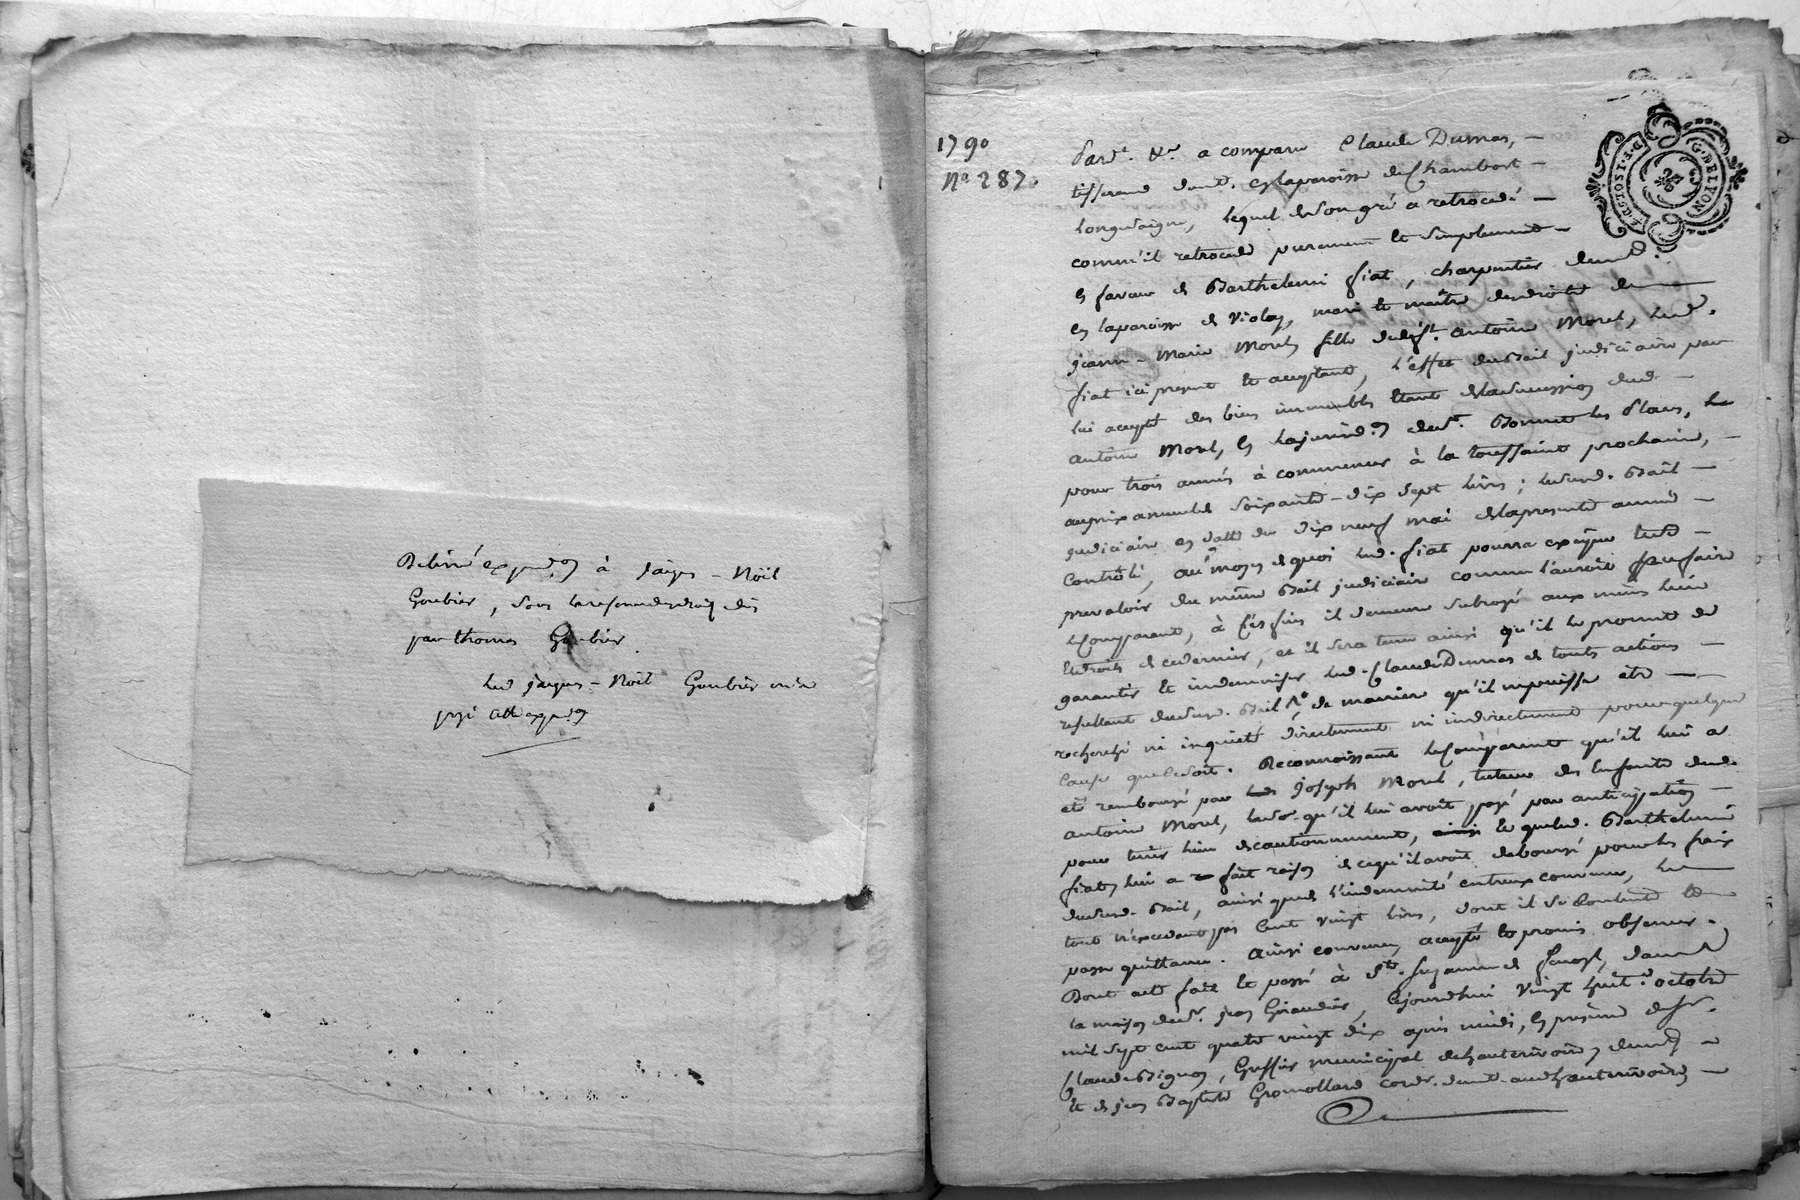 Delivré exped.on à Jaques-Noël
Goubier, sous
par thomas Goubier
led Jaques-Noël Goubier
payé expd.on
1790
N° 287.
Pard.t N.re a comparu Claude Dumas,
tisserand demt. en la paroisse de Chambost
Longesaigne, lequel de son gré a retrocedé
comm'il retrocede purement et simplement
en faveur de Barthelemi fiat, charpentier demt.
en la paroisse de Violay, mari et maître des droits de
Jeanne-Marie Morel, fille dudéft. antoine Morel, led.
fiat ici present et acceptant, l'effet du Bail judiciaire par
lui accepté des biens immeubles étants de la succession dud.
antoine Morel, en la jurisd.on de Sr. Bonnet les Places, le
pour trois années à commencer à la toussaint prochaine,
au prix annuel de soixante-dix sept livres; led. Bail
judiciaire en datte du dix neuf mai de la presente année
Controlé, au moyen de quoi led. fiat pourra exciper et se
prevaloir du même Bail judiciaire comme l'auroit pu faire
le Comparant, à ces fins il demeure subrogé aux mêmes lieu
et droits de ce dernier, et il sera tenu ainsi qu'il le promet de
garantir et indemniser led. Claude Dumas de touts actions
resultant dud. Bail de maniere qu'il ne puisse etre
recherché ni inquieté directement ni indirectement pour quelque
cause que ce soit. Reconnoissant le Comparant qu'il lui a
eté remboursé par Joseph Morel, tuteur des Enfants dud.
antoine Morel, qu'il lui avoit payé par anticipation
pour tenir lieu de cautionnement, et que led. Barthelemi
fiat lui a fait raison de ce qu'il avoit deboursé pour les frais
dud. Bail, ainsi que de l'indemnité entreux convenue, le
tout n'excedant pas Cent vingt livres, dont il se contente et
passe quittance. Ainsi convenu, accepté et promis observer.
Dont acte fait et passé à Ste. Suzanne de , dans
la maison de Sr. jean Giraudier, cejourdhui vingt huit octobre
mil sept cent quatre vingt dix après midi, en présence de Sr.
Claude Bignon, Greffier municipal de hauterivoire, y demt.
et de jean Baptiste Gromollard cord. demt. aud. hauterivoire,
G. DE LYON